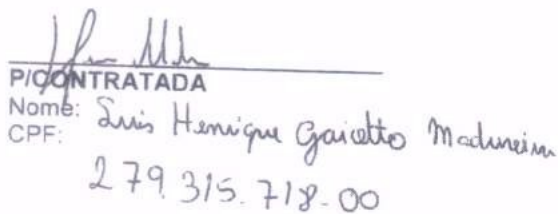 P/CONTRATADA
Nome: Luis Henrique Gaiotto Madureira
CPF:
279.315.718-00